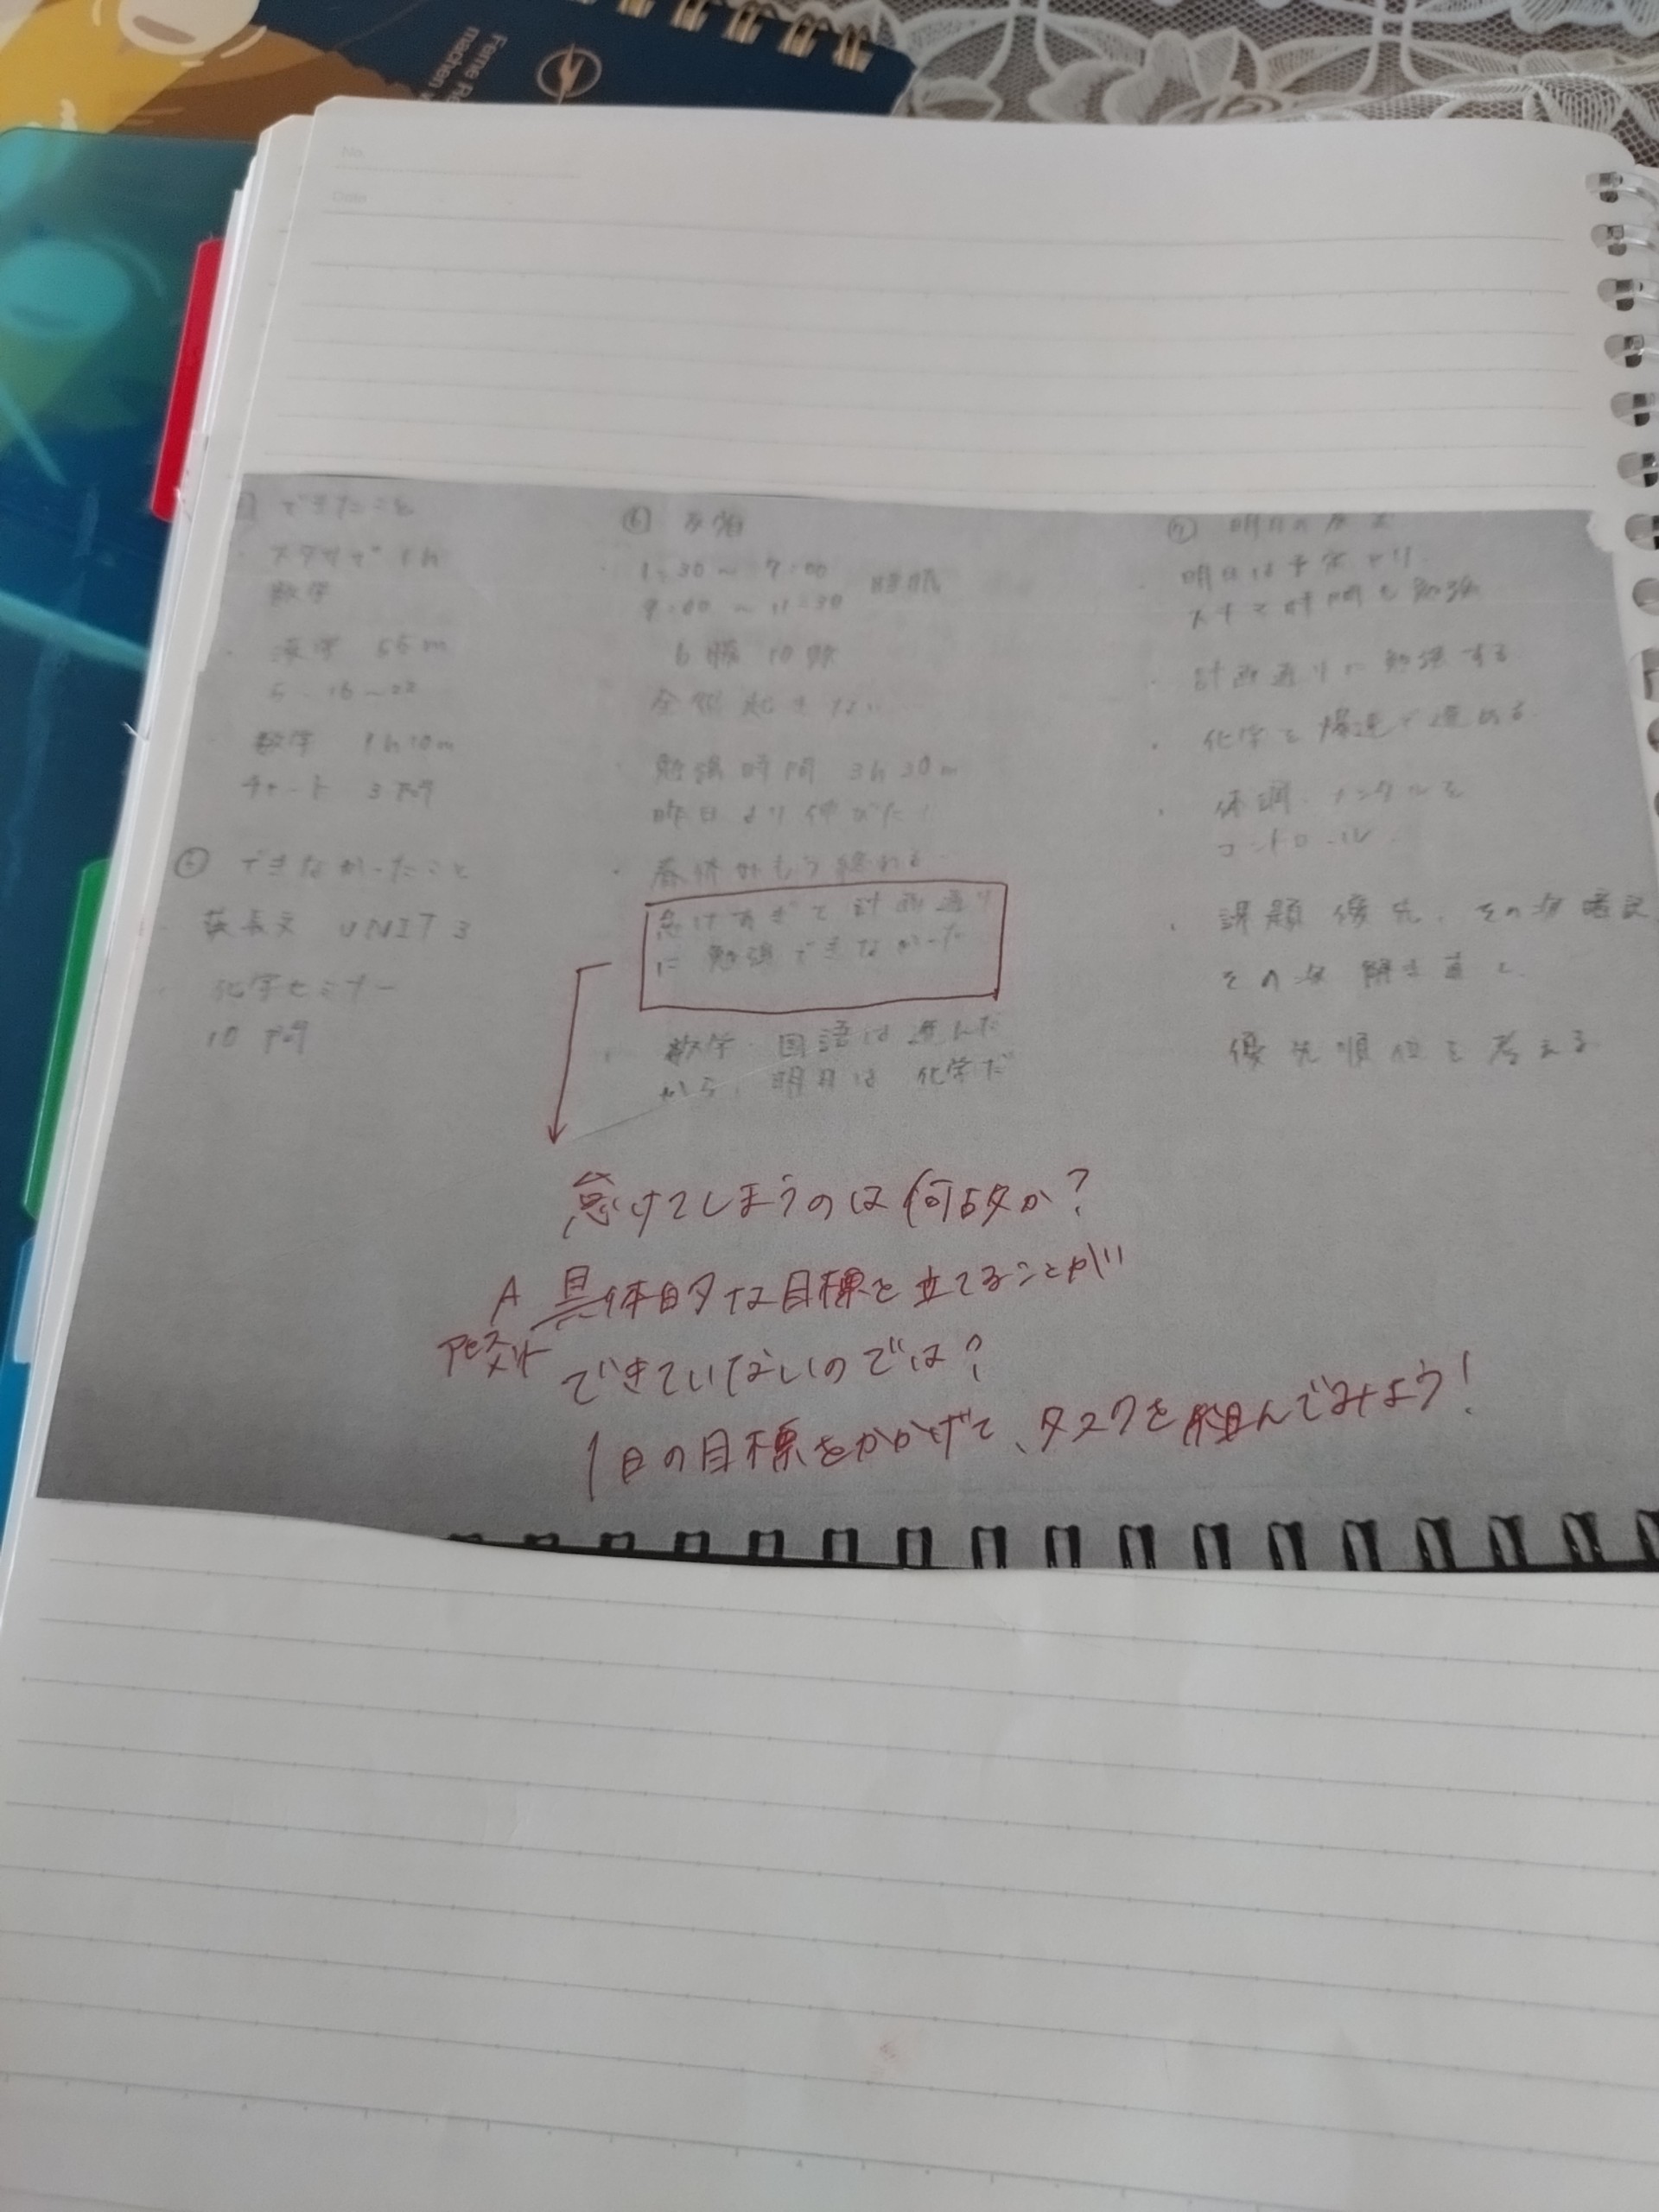 No.
Date
できたこと
スタサプ 1h
数学
漢字 55m
5. 16~22
数学 1h10m
チャート 3問
できなかったこと
英長文 UNIT 3
化学セミナー
10問
1:30~7:00
9:00~11:30 睡眠
全然起きない
勉強時間 3h30m
昨日より伸びた!
春休みもう終わる
怠けすぎて計画通り
に勉強できなかった
数学・国語は進んだ
から、明日は化学だ
明日は予定
時間も勉強
計画通りに勉強する
化学を爆速で進める
体調、メンタルを
コントロール
課題優先、その次暗記
その次解き直し
優先順位を考える
怠けてしまうのは何故か?
A 具体的な目標を立てることが
できていないのでは?
1日の目標をかかげて、タスクを組んでみよう!